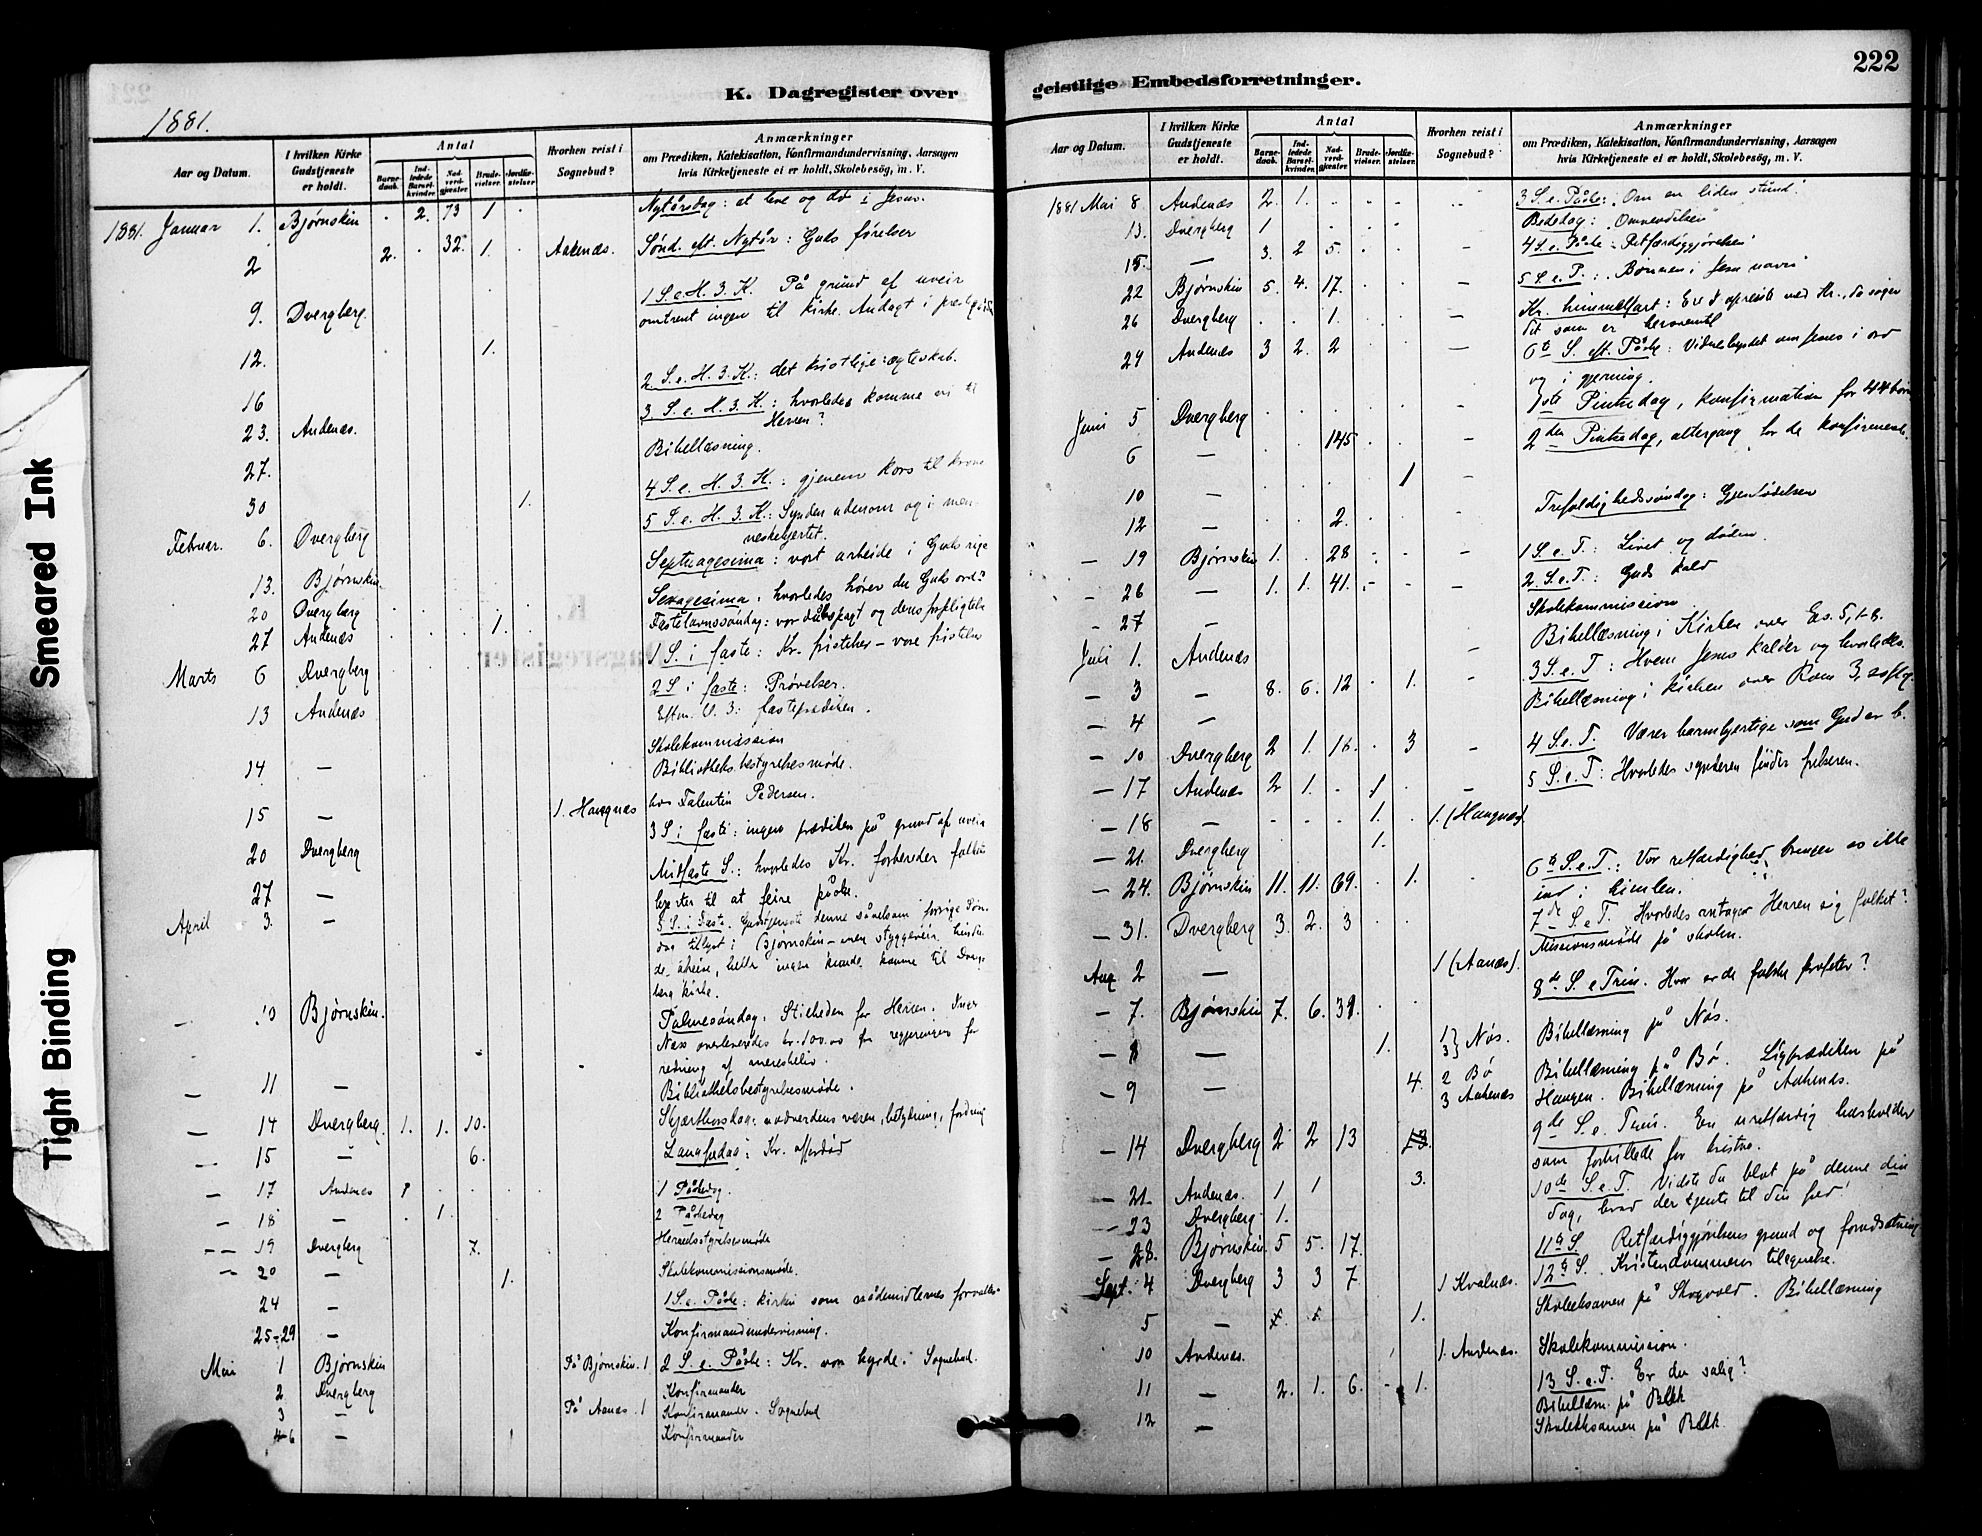 Smeared Ink
Tight Binding
K. Dagregister over
1881.
Aar og Datum.
I hvilken Kirke Gudstjeneste er holdt.
Antal
Barnedaab.
Indledede Barselkvinder
Nadverdgjester
Brudevielser.
Jordfæstelser
Hvorhen reist i Sognebud?
Anmærkninger
om Prædiken, Katekisation, Konfirmandundervisning, Aarsagen
hvis Kirketjeneste ei er holdt, Skolebesög, m. V.
1881. Januar 1. Bjørnskin . 2. 73 1 . Nytårsdag: at leve og dø i Jesus.
2 2. . 32. 1. Aakenæs. Sønd. eft. Nytår: Guds førelser
9. Dverberg. 1 S. e. H. 3. K. På grund af uveir
omtrent ingen til kirke. Andagt i
12. 1.
16 2 S. e. H. 3. K.: det kristelige ægteskab.
23. Andenæs. 3. S. e. H. 3. K.: hvorledes komme vi til
Herren?
27. Bibellæsning.
30 1. 4 S. e. H. 3. K.: gjenem kors til krone
Februar. 6. Dverberg 5 S. e. H. 3. K.: Synden udenom og i men-
neskehjertet.
13. Bjørnskin Septuagesima: vort arbeide i Guds rige
20 Dverberg Sexagesima: hvorledes hører du Guds ord?
27 Andenæs 1. Fastelavnssøndag: vor dåbspagt og dens forpligtelse
Marts 6 Dverberg 1 S. i faste: Kr. fristelser – vore fristelser
13 Andenæs 2 S i faste: Prøvelser.
Eftm. U. 3: fasteprædiken.
Skolekommission
14. — Bibliotheksbestyrelsesmøde.
15 — 1. Haugnæs hos Pedersen.
20 Dverberg 3 S. i faste: ingen prædiken på grund af uveir
27 — Midfaste S.: hvorledes Kr. forbereder folkets
hjerter til at feire påske.
April 3. — 5 S. i Faste. Gudstjeneste denne såvelsom forrige Søn-
dag tillyst i Bjørnskin – men styggeveir hindre-
de, heller ingen kunde komme til Dver-
berg kirke.
— 10 Bjørnskin. Palmesøndag. Stilheden for Herren.
Næss overleveredes kr. 100.00 fra regjeringen for
redning af menneskeliv.
— 11 — Bibliothekbestyrelsesmøde.
— 14 Dverberg. 1. 1. 10. Skjærthorsdag: nadverdens væsen, betydning, fordring
— 15 — 6. Langfredag: Kr. offerdød
— 17 Andenæs 1 1 Påskedag.
— 18 — 1. 2 Påskedag
— 19 Dverberg 7. Herredsstyrelsesmøde
— 20 — 1. Skolekommissionsmøde.
24 — 1 S. e. Påske: kirken som nådemidlernes forvalter
25-29 — Konfirmandundervisning.
Mai 1 Bjørnskin På Bjørnskin. 1 2 S. e. Påske: Kr. vor hyrde. Sognebud.
2 Dverberg Konfirmander
3 — På Aanæs. 1 Konfirmander. Sognebud
4-6 — Konfirmander
geistlige Embedsforretninger.
222
Aar og Datum.
I hvilken Kirke Gudstjeneste er holdt.
Antal
Barnedaab.
Indledede Barselkvinder.
Nadverdgjester
Brudevielser.
Jordfæstelser.
Hvorhen reist i Sognebud?
Anmærkninger
om Prædiken, Katekisation, Konfirmandundervisning, Aarsagen
hvis Kirketjeneste ei er holdt, Skolebesög, m. V.
1881 Mai 8 Andenæs 2. 1. 3 S. e. Påske: "Om en liden stund."
13. Dverberg 1 Bededag: "Omvendelsen"
15. — 3. 2 5. 4 S. e. Påske: Retfærdiggjørelsen
22 Bjørnskin 5. 4. 17. 5 S. e. P.: "Bønnen i Jesu navn"
26 Dverberg 1. Kr. himmelfart: Ere I opreiste med Kr., da søger
det som er heroventil
29 Andenæs 3 2. 2 6te S. eft. Påske: Vidnesbyrdet om Jesus i ord
og i gjerning.
Juni 5 Dverberg 1ste Pintsedag, konfirmation for 44 børn
6 — 145 2den Pintsedag, altergang for de konfirmerede.
10 — 1
12 — 2. Trefoldighedssøndag: Gjenfødelsen
— 19 Bjørnskin 1. 28 1 S. e. T.: Livet og døden.
— 26 — 1. 1. 41. 2. S. e. T: Guds kald
— 27 — Skolekommission
Juli 1. Andenæs Bibellæsning i Kirken over Es. 5, 1-8.
— 3 — 8. 6. 12 1. 3 S. e. T: Hvem Jesus kalder og hvorledes.
— 4 — Bibellæsning i Kirken over Rom 3,
— 10 Dverberg 2 1. 16. 3 4 S. e. T. Værer barmhjertige som Gud er b.
— 17 Andenæs 2 1. 1 5 S. e. T: Hvorledes synderen finder frelseren.
— 18 — 1. 1. (Haugnæs)
— 21. Dverberg 1.
— 24. Bjørnskin 11. 11. 69. 1. 6te S. e. T.: Vor retfærdighed bringer os ikke
ind i himlen.
— 31. Dverberg 3. 2. 3 7de S. e. T. Hvorledes antager Herren sig folket?
Missionsmøde på skolen.
Aug 2 — 1 (Aanæs).
— 7. Bjørnskin 7. 6. 39. 8de S. e Trin. Hvor er de falske profeter?
— 8 — 1. 1 3} Nøs. Bibellæsning på Nøs.
— 9 — 4. 2 Bø Bibellæsning på Bø. Ligprædiken på
3 Aakenæs Haugen. Bibellæsning på Aakenæs.
— 14 Dverberg 2 2 13 13. 9de S. e. Trin. En uretfærdig husholder
som forbillede for kristne.
— 21. Andenæs. 1 1 3. 10de S. e. T. Vidste du blot på denne din
dag, hvad der tjente til din fred!
— 23 Dverberg. 1.
— 28. Bjørnskin. 5 5. 17. 11te S. Retfærdiggjørelsens grund og forudsætning
Sept. 4 Dverberg 3 3 7. 1 Kvalnæs. 12te S. Kristendommens tilegnelse.
5 — 1. Skoleeksamen på Skogvold. Bibellæsning
10 Andenæs. 1. Andenæs. Skolekommission.
11 — 2. 1. 6. 1. 13 S. e. T. Er du salig?
Bibellæsn. på Bleik
12 — Skoleeksamen på Bleik.